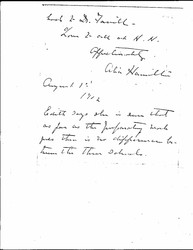 and to Dr.
Love to all at H. H.
Affectionately
Alice Hamilton
August 1st
1912
Edith says she is sure that
as far as the preparatory work
goes there is no difference be-
tween the three schools.